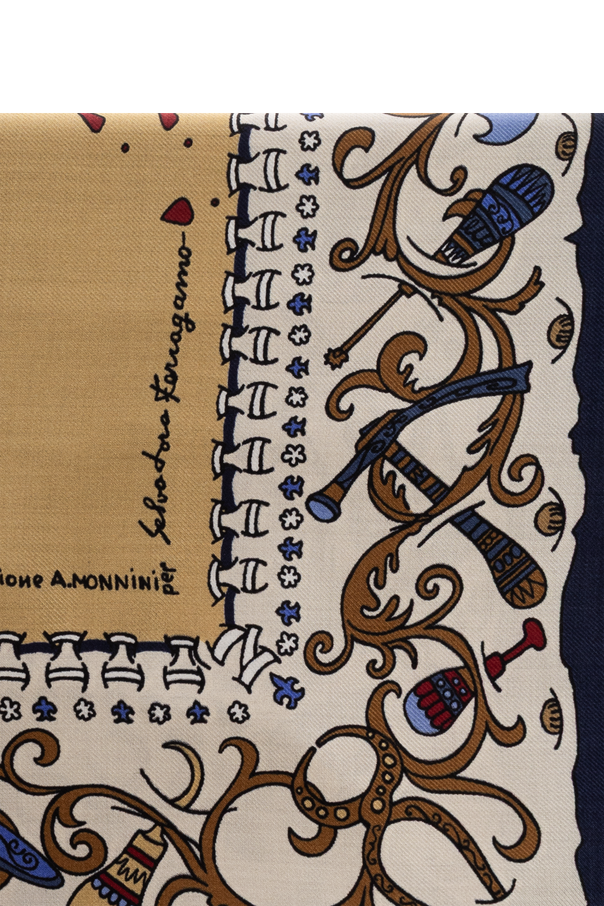 ione A.MONNINI
per
Salvatore Ferragamo